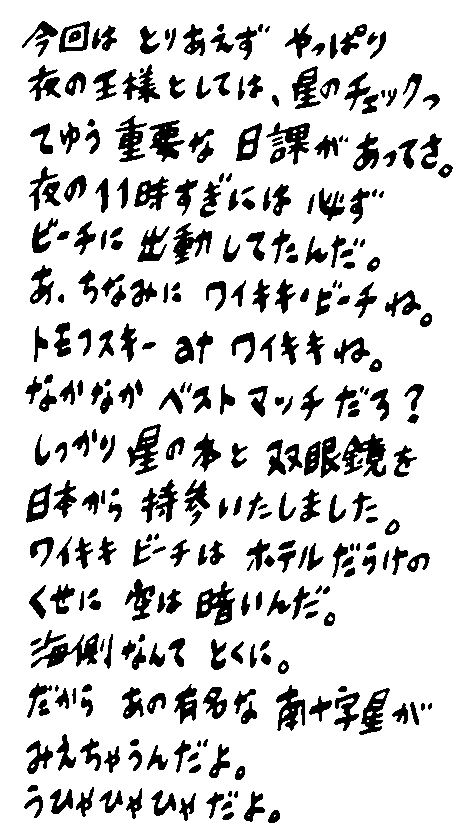 今回は とりあえず やっぱり
夜の王様としては、星のチェックっ
てゆう 重要な 日課が あってさ。
夜の11時すぎには 必ず
ビーチに 出動してたんだ。
あ、ちなみに ワイキキ・ビーチね。
トモフスキー at ワイキキね。
なかなか ベストマッチだろ?
しっかり 星の本と 双眼鏡を
日本から 持参いたしました。
ワイキキ ビーチは ホテルだらけの
くせに 空は 暗いんだ。
海側なんて とくに。
だから あの有名な 南十字星が
みえちゃうんだよ。
うひゃひゃひゃだよ。